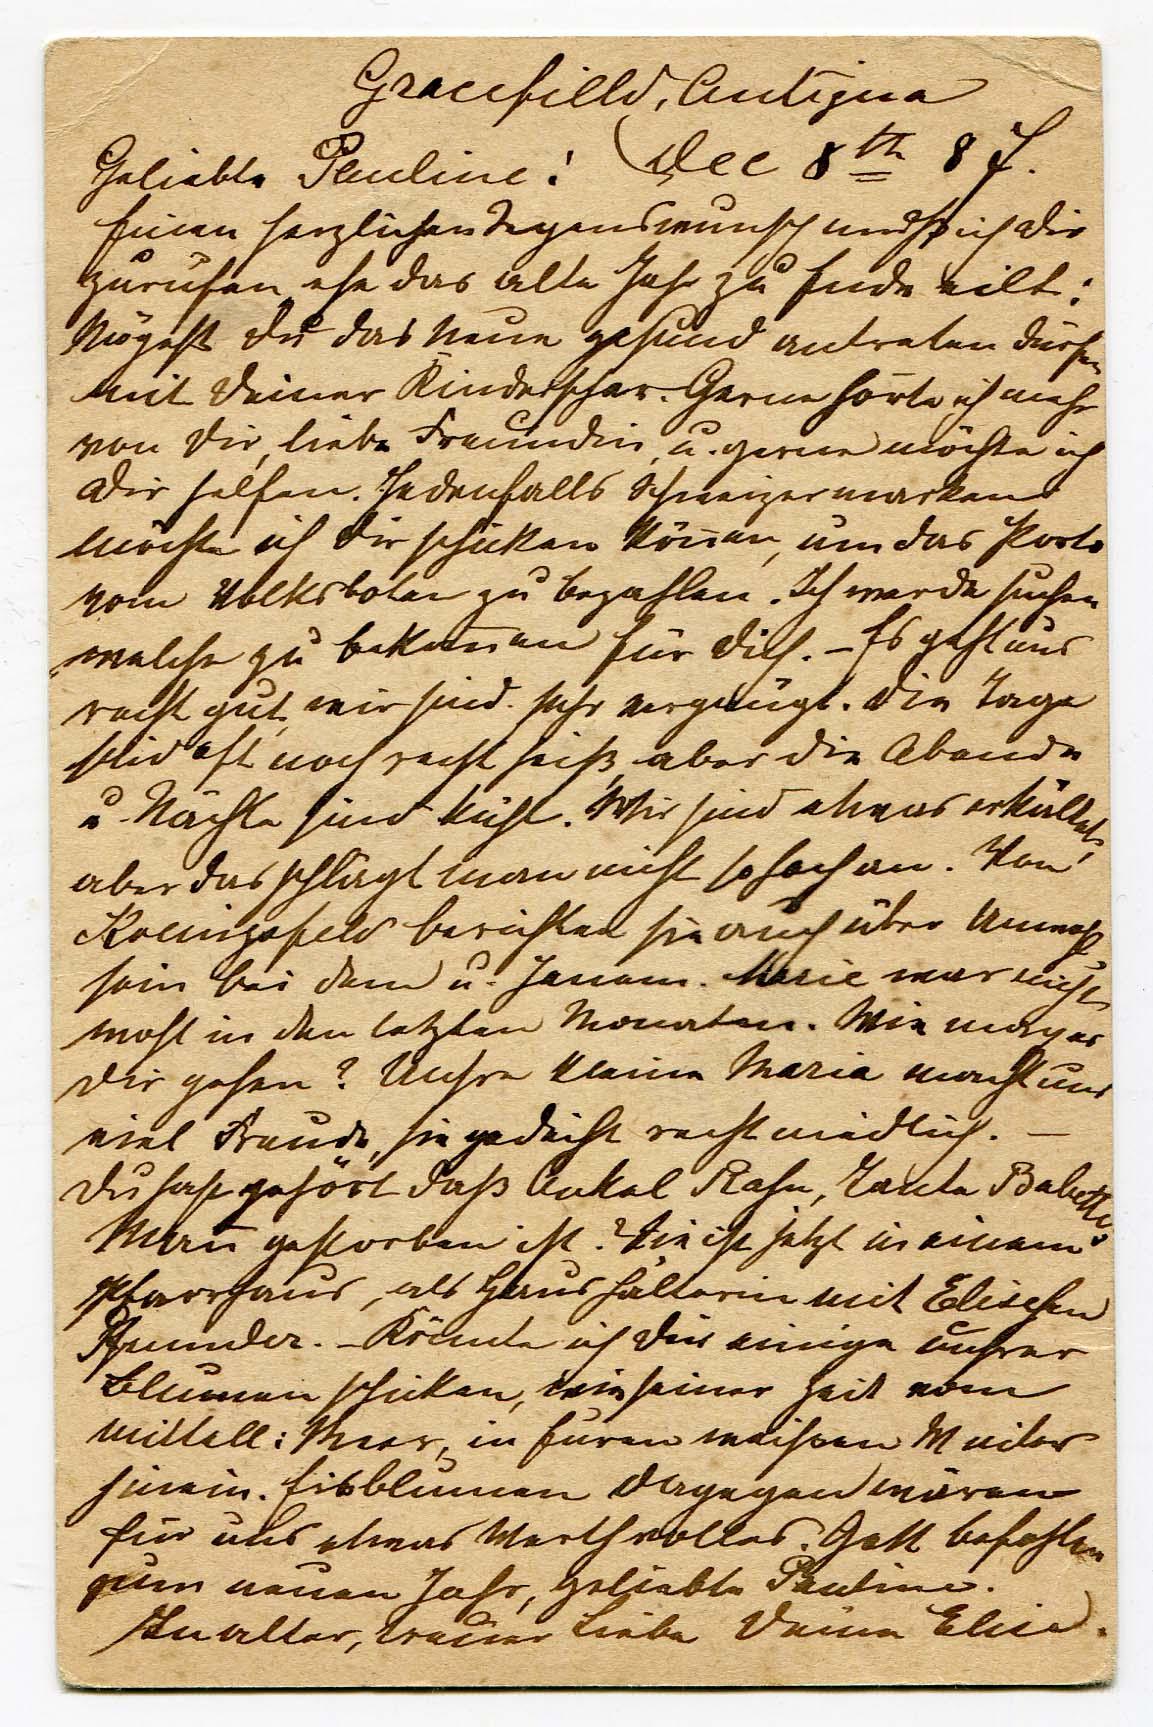 Gracefield, Antigua
Dec 8th 87.
Geliebte Pauline!
Einen herzlichen Segenswunsch möcht ich Dir
zurufen ehe das alte Jahr zu Ende eilt:
Mögest Du das Neue gesund antreten dürfen
mit Deiner Kinderschar. Gerne hörte ich mehr
von Dir, liebe Freundin, u. gerne möchte ich
Dir helfen. Jedenfalls Schweizermarken
möchte ich Dir schicken können, um das Porto
vom Volksboten zu bezahlen. Ich werde suchen
welche zu bekommen für Dich. – Es geht uns
recht gut, wir sind sehr vergnügt. Die Tage
sind oft noch recht heiß, aber die Abende
u. Nächte sind kühl. Wir sind etwas erkältet,
aber das schlägt man nicht so hoch an. Von
Koenigsfeld berichten sie auch über Unwohl
sein bei dem u. Jenem. Marie war nicht
wohl in den letzten Monaten. Wie mag es
Dir gehen? Unsre kleine Maria macht uns
viel Freude, sie gedeiht recht niedlich. –
Du hast gehört daß Onkel Rahn, Tante Babette's
Mann gestorben ist? Sie ist jetzt in einem
Pfarrhaus, als Haushälterin mit Elischen
Pfunder. – Könnte ich Dir einige unsrer
Blumen schicken, wie seiner Zeit vom
mittell: Meer, in Euren weissen Winter
hinein. Eisblumen dagegen wären
für uns etwas Werthvolles. Gott befohlen
zum neuen Jahr, geliebte Pauline.
In alter, treuer Liebe Deine Elise.